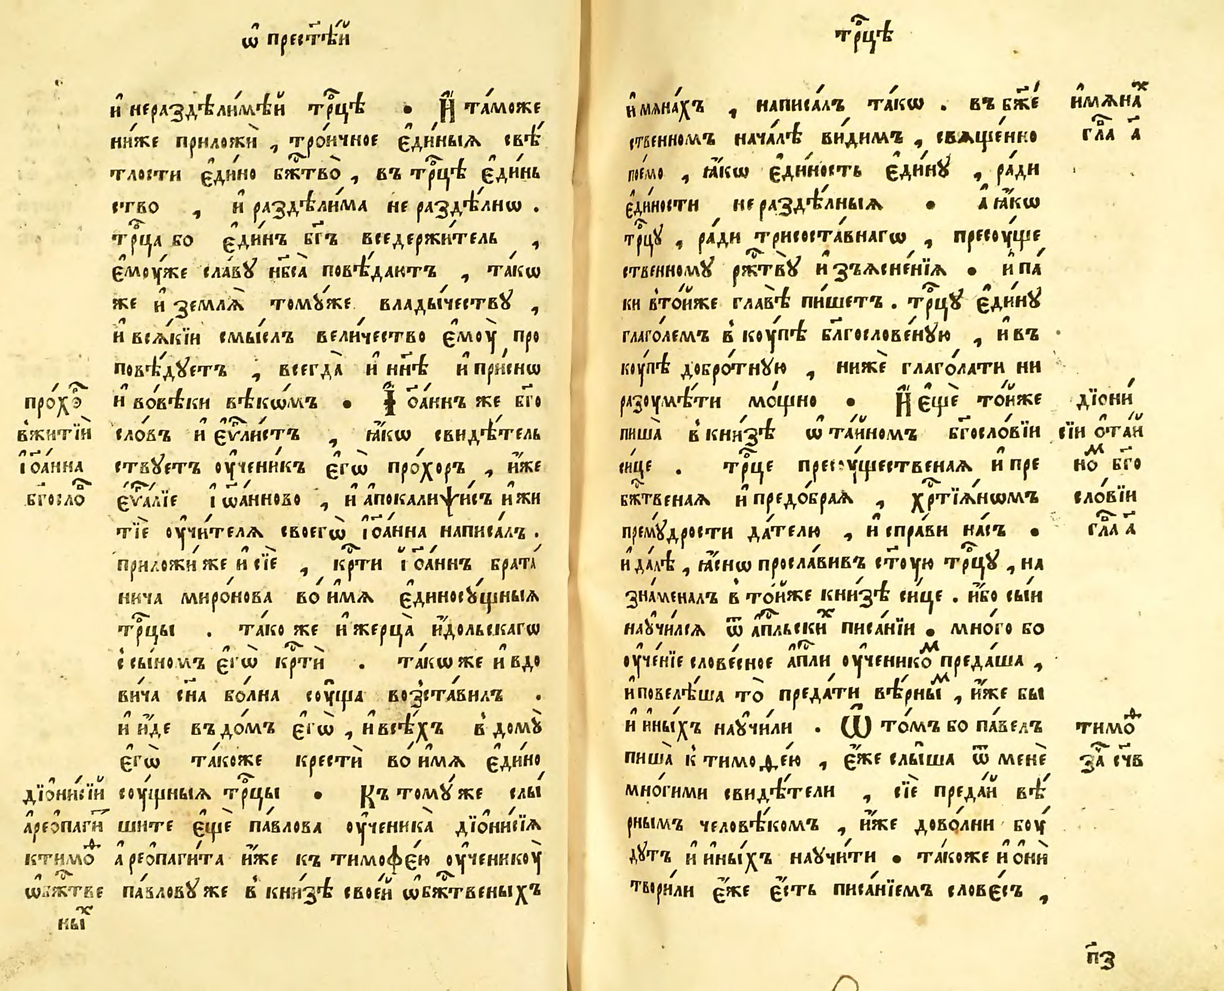 ѡ҃ прест҃ѣ́й
и҆ нераздѣли́мѣй тр҃цѣ . И҆ та́може
ни́же приложѝ , трои́чное є҆ди́ныѧ свѣ́
тлости є҆ди́но бж҃твò , въ тр҃цѣ є҆ди́нь
ство , и҆ раздѣли́ма не раздѣ́лнѡ .
тр҃ца бо є҆ди́нъ бг҃ъ вседержи́тель ,
є҆мꙋ́же сла́вꙋ нб҃са̀ повѣ́даютъ , та́кѡ
же и҆ землѧ̀ томꙋ́же влады́чествꙋ ,
и҆ всѧ́кїи смы́слъ вели́чество є҆мꙋ̀ про
повѣ́дꙋетъ , всегда̀ и҆ нн҃ѣ и҆ при́снѡ
и҆ вовѣ́ки вѣкѡ́мъ . І҆ѡа́ннъ же бг҃о
сло́въ и҆ є҆ѵ҃ли́стъ , ꙗ҆́кѡ свидѣ́тель
ствꙋетъ ᲂу҆чени́къ є҆гѡ̀ про́хоръ , и҆́же
є҆ѵ҃а́лїе і҆ѡа́нново , и҆ апока́липсисъ и҆ жи
тїѐ ᲂу҆чи́телѧ своегѡ̀ і҆ѡа́нна написа́лъ .
приложи́ же и҆ сїѐ , кр҃тѝ і҆ѡа́ннъ брата́
нича миро́нова во и҆́мѧ є҆диносꙋ́щныѧ
тр҃цы . тако́же и҆ жерца̀ и҆́дольскагѡ
с̾ сы́номъ є҆гѡ̀ кр҃тѝ . та́кѡже и҆ вдо
ви́ча сн҃а бо́лна сꙋ́ща возста́вилъ .
и҆ и҆́де въ до́мъ є҆гѡ̀ , и҆ всѣ́хъ в̾ домꙋ̀
є҆гѡ̀ та́коже крестѝ во и҆́мѧ є҆ди́но
сꙋ́щныѧ тр҃цы . Къ томꙋ́ же слы́
шите є҆щѐ па́влова ᲂу҆ченика̀ дїони́сїѧ
а҆реопаги́та и҆́же къ тимоѳе́ю ᲂу҆ченикꙋ̀
па́влову же в̾ кни́зѣ свое́й ѡ҆ бж҃твеныхъ
про́хо
в̾житїи
і҆ѡа́нна
бг҃осло
дїони́сїй
а҆реопаги́
к̾тимо
ѡ҆бж҃тве
ны́х
тр҃цѣ
и҆мѧна́хъ , написа́лъ та́кѡ . въ бж҃е́
ственномъ нача́лѣ ви́димъ , свѧще́нно
пое́мо , ꙗ҆́кѡ є҆ди́ность є҆ди́нꙋ , ра́ди
є҆ди́ности не раздѣ́лныѧ . а҆ ꙗ҆́кѡ
тр҃цꙋ , ра́ди трисоста́внагѡ , пресꙋ́ще
ственному рж҃твꙋ̀ и҆зъѧсне́нїѧ . и҆ па́
ки в̾то́йже главѣ̀ пи́шетъ . тр҃цꙋ є҆ди́нꙋ
глаго́лемъ в̾ кꙋ́пѣ бл҃гослове́ную , и҆ въ
кꙋ́пѣ добро́тную , нижѐ глаго́лати ни
разꙋмѣ́ти мо́щно . И҆ є҆щѐ то́йже
пиша̀ в̾ кни́зѣ ѡ҆ та́йномъ бг҃осло́вїи
си́це . тр҃це пресꙋ́щественаѧ и҆ пре
бж҃твенаѧ и҆ предо́браѧ , хр҃тїѧ́нѡмъ
премꙋ́дрости да́телю , и҆ спра́ви на́съ .
и҆ да́лѣ , ꙗ҆́снѡ просла́вивъ ст҃ꙋю тр҃цꙋ , на
зна́меналъ в̾ то́йже кни́зѣ си́це . и҆́бо сы́и
наꙋчи́лсѧ ѿ а҆пл҃ьских писа́нїи . мно́го бо
ᲂу҆че́нїе слове́сное а҆пл҃и ᲂу҆ченико́м преда́ша ,
и҆ повелѣ́ша то̀ преда́ти вѣ́рным , и҆́же бы
и҆ и҆ны́хъ наꙋчи́ли . Ѿ то́мъ бо па́велъ
пиша̀ к̾ тимоѳе́ю , є҆́же слы́ша ѿ менѐ
мно́гими свидѣ́тели , сїѐ преда́й вѣ́
рнымъ человѣ́комъ , и҆́же дово́лни бꙋ́
дꙋтъ и҆ и҆ны́хъ наꙋчи́ти . та́коже и҆ о҆нѝ
твори́ли є҆́же є҆́сть писа́нїемъ слове́съ ,
и҆мѧна́х
гл҃а а҃
дїони́
сїи ѻ҆ та́и
но́м бг҃о
сло́вїи
гл҃а а҃
тимоѳ
за҃ сч҃в
п҃з